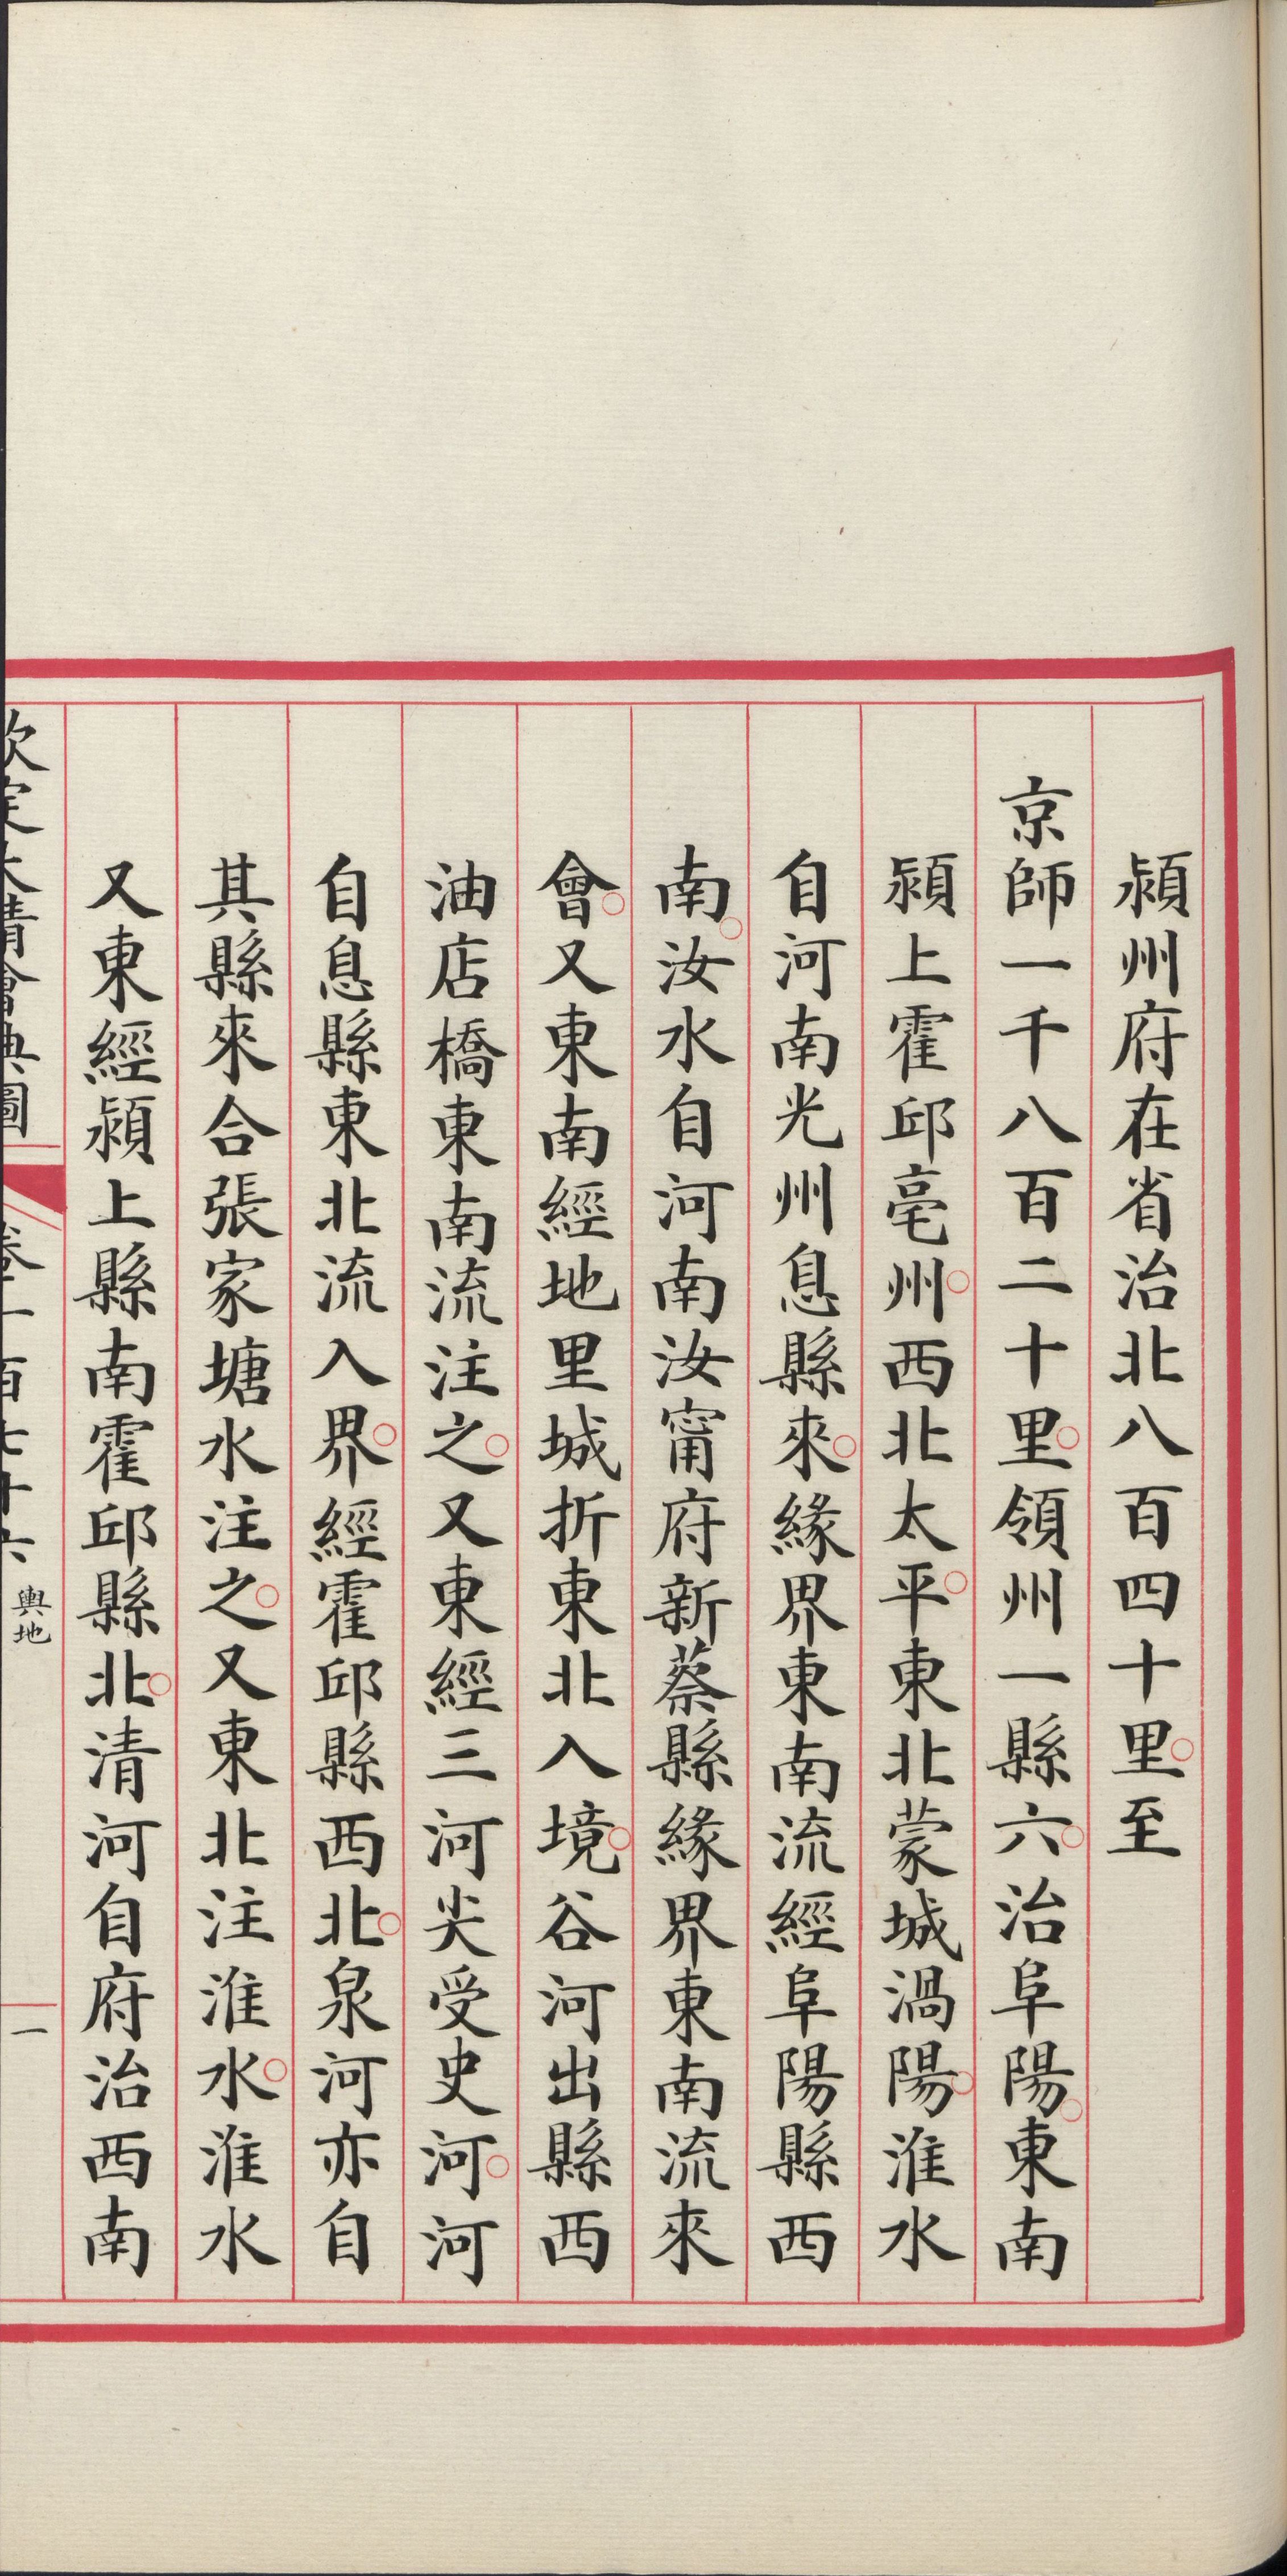 潁州府在省治北八百四十里。至
京師一千八百二十里。領州一縣六。治阜陽。東南
潁上霍邱亳州。西北太平。東北蒙城渦陽。淮水
自河南光州息縣來。緣界東南流經阜陽縣西
南。汝水自河南汝甯府新蔡縣緣界東南流來
會。又東南經地里城折東北入境。谷河出縣西
油店橋東南流注之。又東經三河尖受史河。河
自息縣東北流入界。經霍邱縣西北。泉河亦自
其縣來合張家塘水注之。又東北注淮水。淮水
又東經潁上縣南霍邱縣北。清河自府治西南
欽定大清會典圖 卷一百七十六 輿地 一